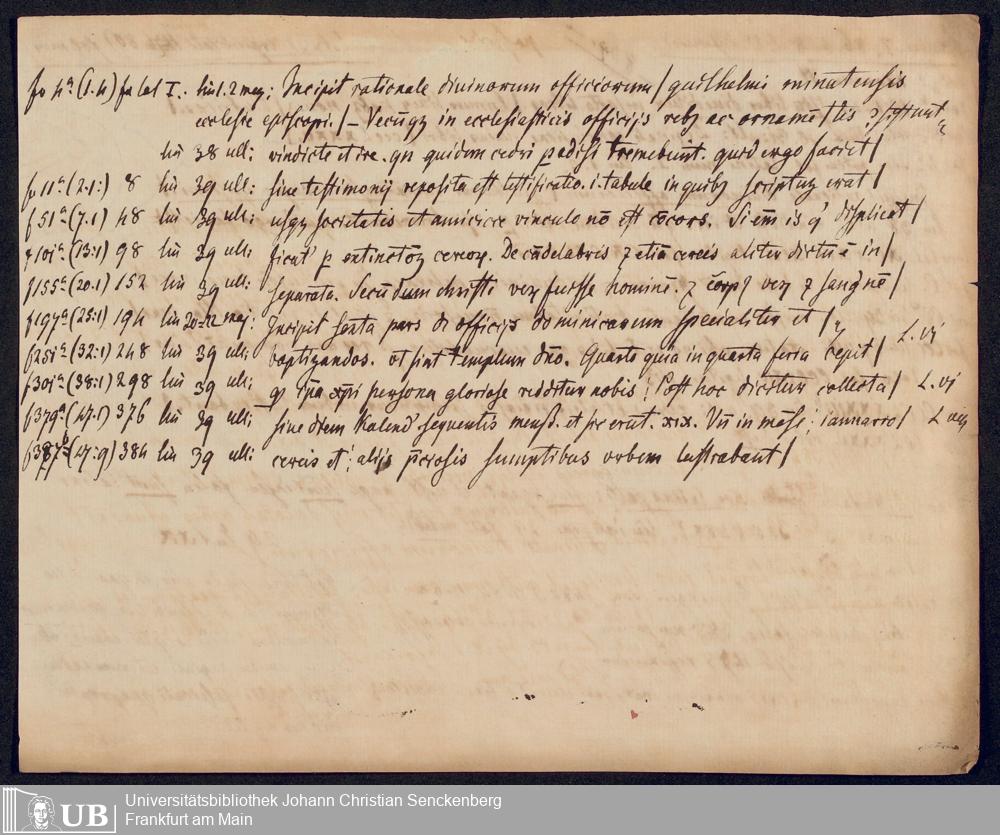 fo 4ª (1.4) fo lat I. lin 1.2 maj: Incipit rationale divinorum officiorum / guilhelmi minatensis
ecclesie episcopi. / – Decūqz in ecclesiasticis officijs rebz ac ornamētis
lin 38 ult: vindicte et ire. qn quidem cedri padisi tremebunt. quid ergo faciet /
fo 11ª (2.1:) 8 lin 39 ult: sine testimonij reposita est testificatio. i. tabule in quibz scriptuz erat /
f 51ª (7.1) 48 lin 39 ult: usqz societatis et amicicie vinculo nō est cōcors. Si em is q' displicat /
f 101ª (13:1) 98 lin 39 ult: ficut' p extinctōz cereoz. De cādelabris z etiā cereis aliter dictū ē in /
f 155ª (20.1) 152 lin 39 ult: separata. Secūdum christi vez fuisse hominē. z corpz vez z sangnē /
f 197ª (25:1) 194 lin 20-22 maj: Incipit sexta pars de officijs dominicarum specialiter et /
f 251ª (32:1) 248 lin 39 ult: baptizandos. ut sint templum dn̄o. Quarto quia in quarta feria cepit / L. vi
f 301ª (38:1) 298 lin 39 ult: q in xp̄i persona gloriose redditur nobis: Post hoc dicitur collecta / L. vi
f 379ª (47.1) 376 lin 39 ult: sine diem Kalend sequentis mensis. et sic erunt. xix. Vn̄ in mēse; iannario /
f 387ᵇ (47:9) 384 lin 39 ult: cereis et; alijs p̄ciosis sumptibus urbem lustrabant /
Universitätsbibliothek Johann Christian Senckenberg
Frankfurt am Main
UB